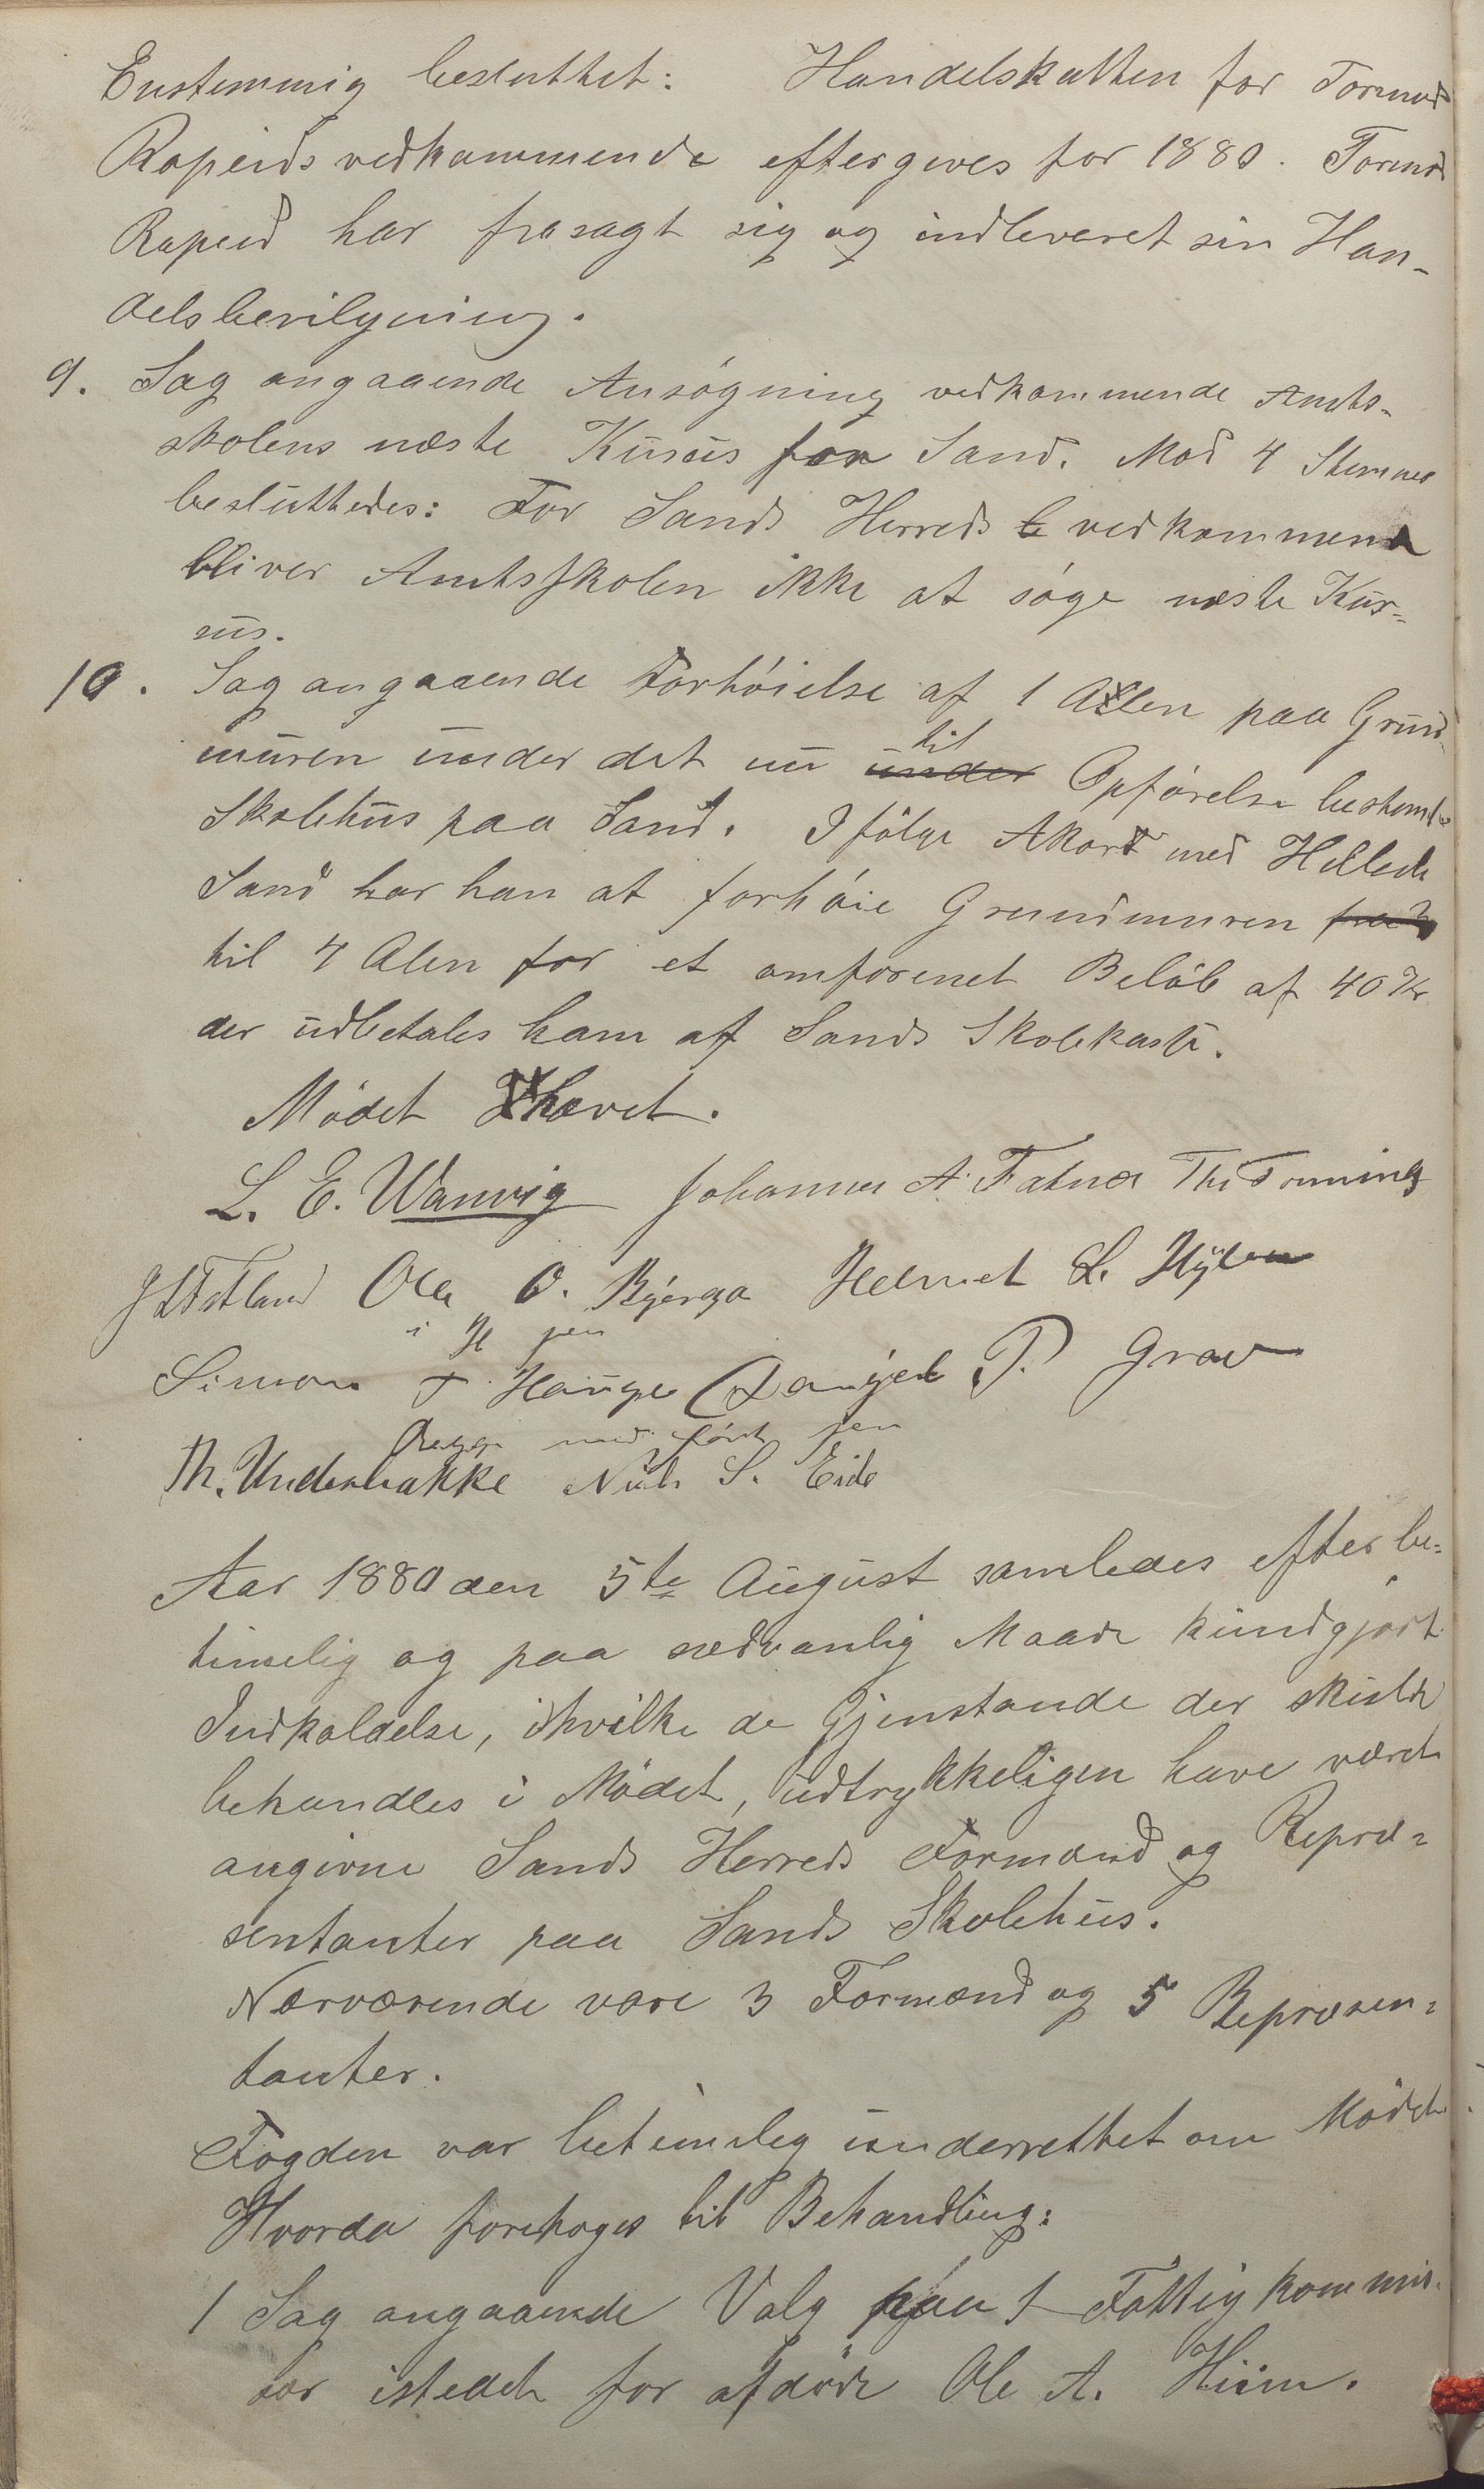 Enstemmig besluttet: Handelskatten for Tormod
Rapeids vedkommende eftergives for 1880. Tormod
Rapeid har frasagt sig og indleveret sin Han-
delsbevilgning.
9. Sag angaaende Ansøgning vedkommende Amts-
skolens næste Kursus for Sand. Mod 4 Stemmer
besluttedes: For Sands Herreds vedkommende
bliver Amtsskolen ikke at søge næste Kur-
sus.
10. Sag angaaende Forhøielse af 1 Alen paa Grund
muren under det nu til Opførelse bestemte
Skolehus paa Sand. Ifølge Akord med
Sand har han at forhøie Grundmuren
til 4 Alen for et omforenet Beløb af 40 Kr
der udbetales ham af Sands Skolekasse.
Mødet hævet.
L. E. Wanvig Johannes A. Fatnes Th. Tønning
Ole O. Bjerga Helmet L. Hylen
i H pen
Simon T Hauge Daniel P. Grov
med ført pen
Th. Underbakke Niels S. Eide
Aar 1880 den 5te August samledes efter be-
timelig og paa sædvanlig Maade kundgjort
Indkaldelse, i hvilke de Gjenstande der skulde
behandles i Mødet, udtrykkeligen have været
angivne Sands Herreds Formænd og Repræ-
sentanter paa Sands Skolehus.
Nærværende vare 3 Formænd og 5 Repræsen-
tanter.
Fogden var betimelig underrettet om Mødet
Hvorda foretoges til Behandling:
1 Sag angaaende Valg paa 1 Fattigkommis-
sær istedet for afdøde Ole A. Hiim.